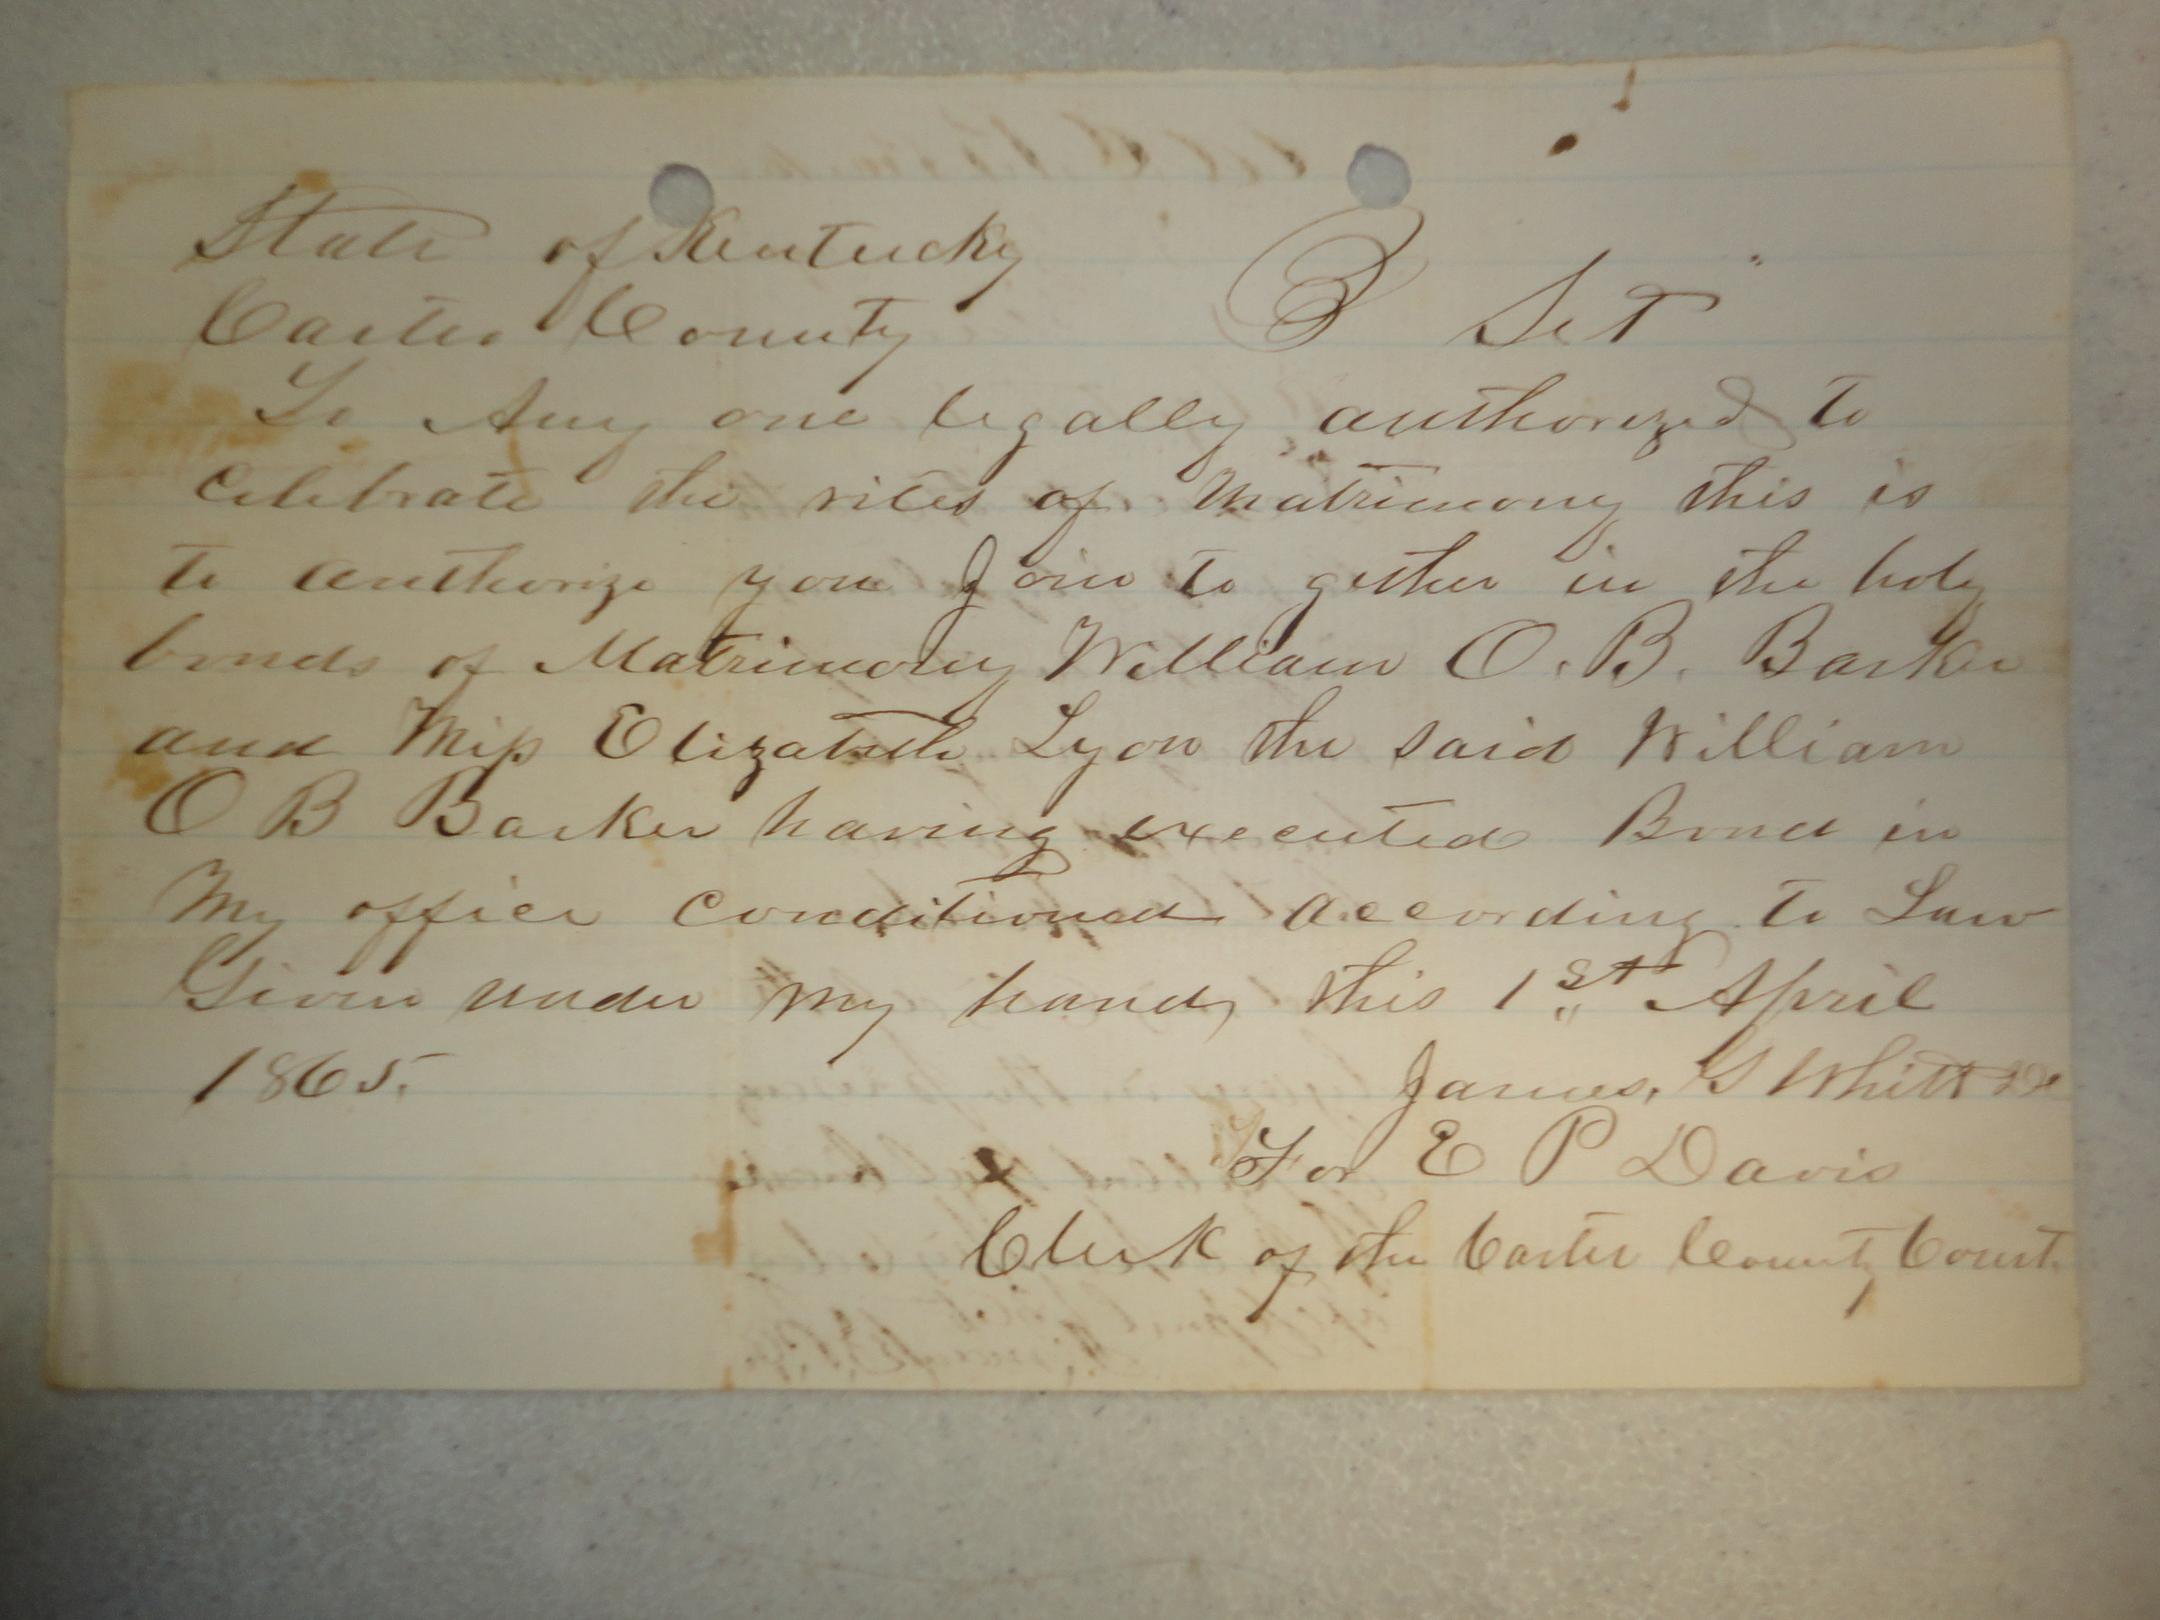 State of Kentucky
Carter County } Sct
To Any one legally authorized to
Celebrate the rites of Matrimony this is
to authorize you Join to gether in the holy
bonds of Matrimony William O. B. Barker
and Miss Elizabeth Lyon the said William
O B Barker having executed Bond in
My office conditioned according to Law
Given under my hand, this 1st April
1865.
James, G Whitt DC
For E P Davis
Clerk of the Carter County Court